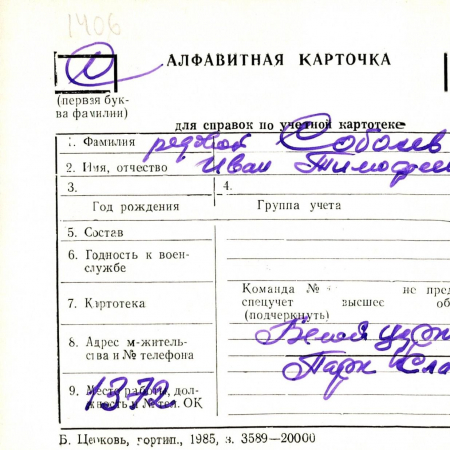 1406
С
АЛФАВИТНАЯ КАРТОЧКА
(первая бук-
ва фамилии)
для справок по учетной картотеке
1. Фамилия рядовой Соболев
2. Имя, отчество Иван Тимофеев
3. 4.
Год рождения Группа учета
5. Состав
6. Годность к воен-
службе
Команда № не пред
7. Картотека спецучет высшее об
(подчеркнуть)
8. Адрес м-житель-
ства и № телефона
Белая Церк
Парк Сла
9. Место работы, дол-
жность и № тел. ОК
1372
Б. Церковь, гортип., 1985, з. 3589—20000